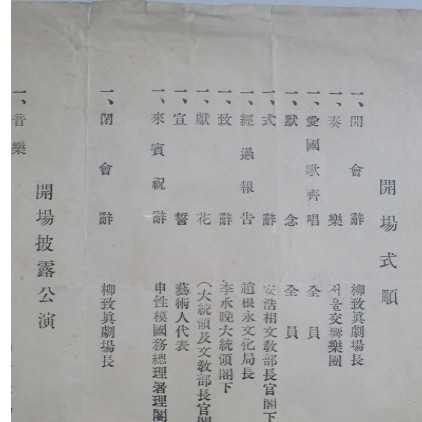 開場式順
一、開會辭 柳致眞劇場長
一、奏樂 서울交響樂團
一、愛國歌齊唱 全員
一、默念 全員
一、式辭 安浩相文教部長官閣下
一、經過報告 趙根永文化局長
一、致辭 李承晩大統領閣下
一、獻花 (大統領及文教部長官閣
一、宣誓 藝術人代表
一、來賓祝辭 申性模國務總理署理閣
一、閉會辭 柳致眞劇場長
開場披露公演
一、音樂